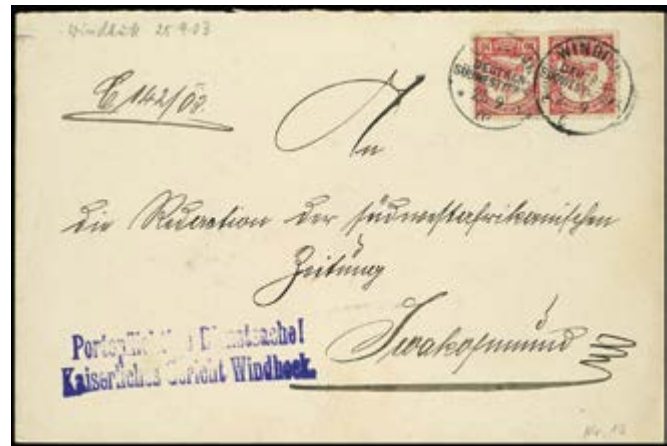 Windhuk 25 9 03
WINDH
DEUTSCH
SÜDWESTAFR
9
An
die Redaction der südwestafrikanischen
Zeitung
Swakopmund
Portopflichtige Dienstsache!
Kaiserliches Gericht Windhoek.